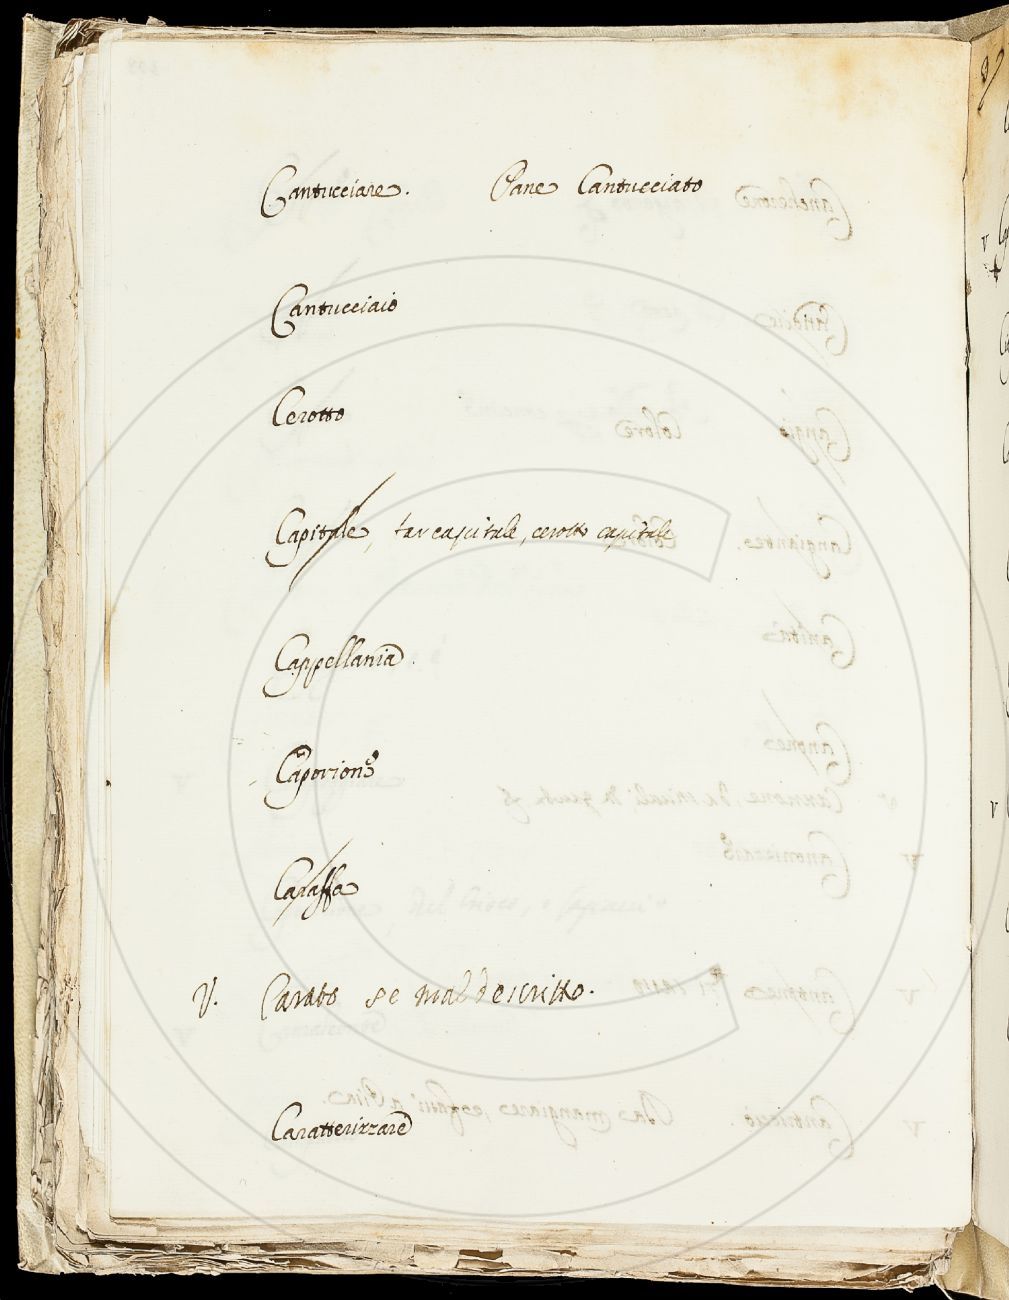 Cantucciare. Pane Cantucciato
Cantucciaio
Cerotto
Capitale, cerotto capitale
Cappellania.
Caporione
Caraffa
V. Carato se mal descritto.
Caratterizzare